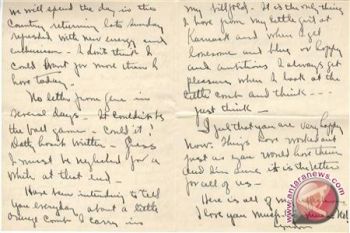 We will spend the day in the
Country returning late Sunday
refreshed with new energy and
enthusiasm - I don't think I
could want for more than I
have today.
No letter from Gene in
several days - It couldn't be
the ball game - Could it!
Both
I must be neglected for a
while at that end -
Have been intending to tell
you everyday about a little
orange comb I carry in
my billfold. It is the only thing
I have from my little girl at
and when I get
lonesome and blue or happy
and ambitious I always get
pleasure when I look at the
little comb and think - - -
just think -
I feel that you are very happy
now. Things have worked out
just as you would have them
and I'm sure it is the better
for all of us -
Here is all of my
I love you much
Lyndon
www.antaranews.com